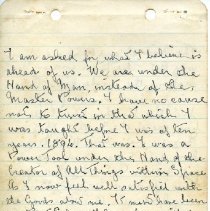 I am asked for what I believe is
ahead of us. We are under the
Hand of Man instead of the
Master Powers. I have no cause
not to trust in that which I
was taught before I was of ten
years. 1896. That was. I was a
Power Tool under the Hand of the
Creator of All Things within Space
As I now feel well satisfied with
the Gods above me. If men have been